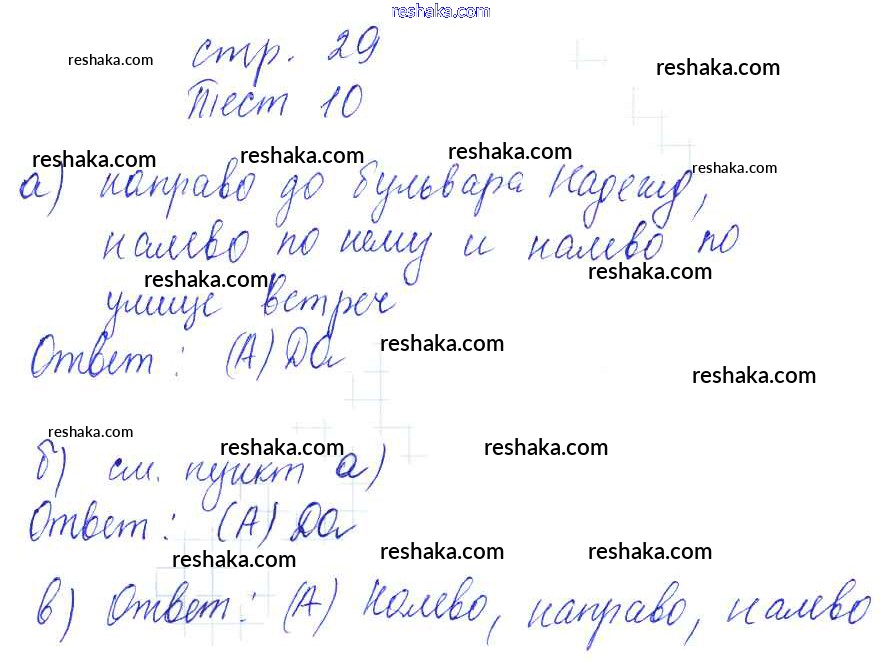 reshaka.com
стр. 29
reshaka.com
reshaka.com
Тест 10
reshaka.com
reshaka.com
reshaka.com
reshaka.com
а) направо до бульвара Надежд,
налево по нему и налево по
reshaka.com
reshaka.com
улице встреч
reshaka.com
Ответ: (А) Да
reshaka.com
reshaka.com
reshaka.com
reshaka.com
б) см. пункт а)
Ответ: (А) Да
reshaka.com
reshaka.com
reshaka.com
в) Ответ: (А) Налево, направо, налево